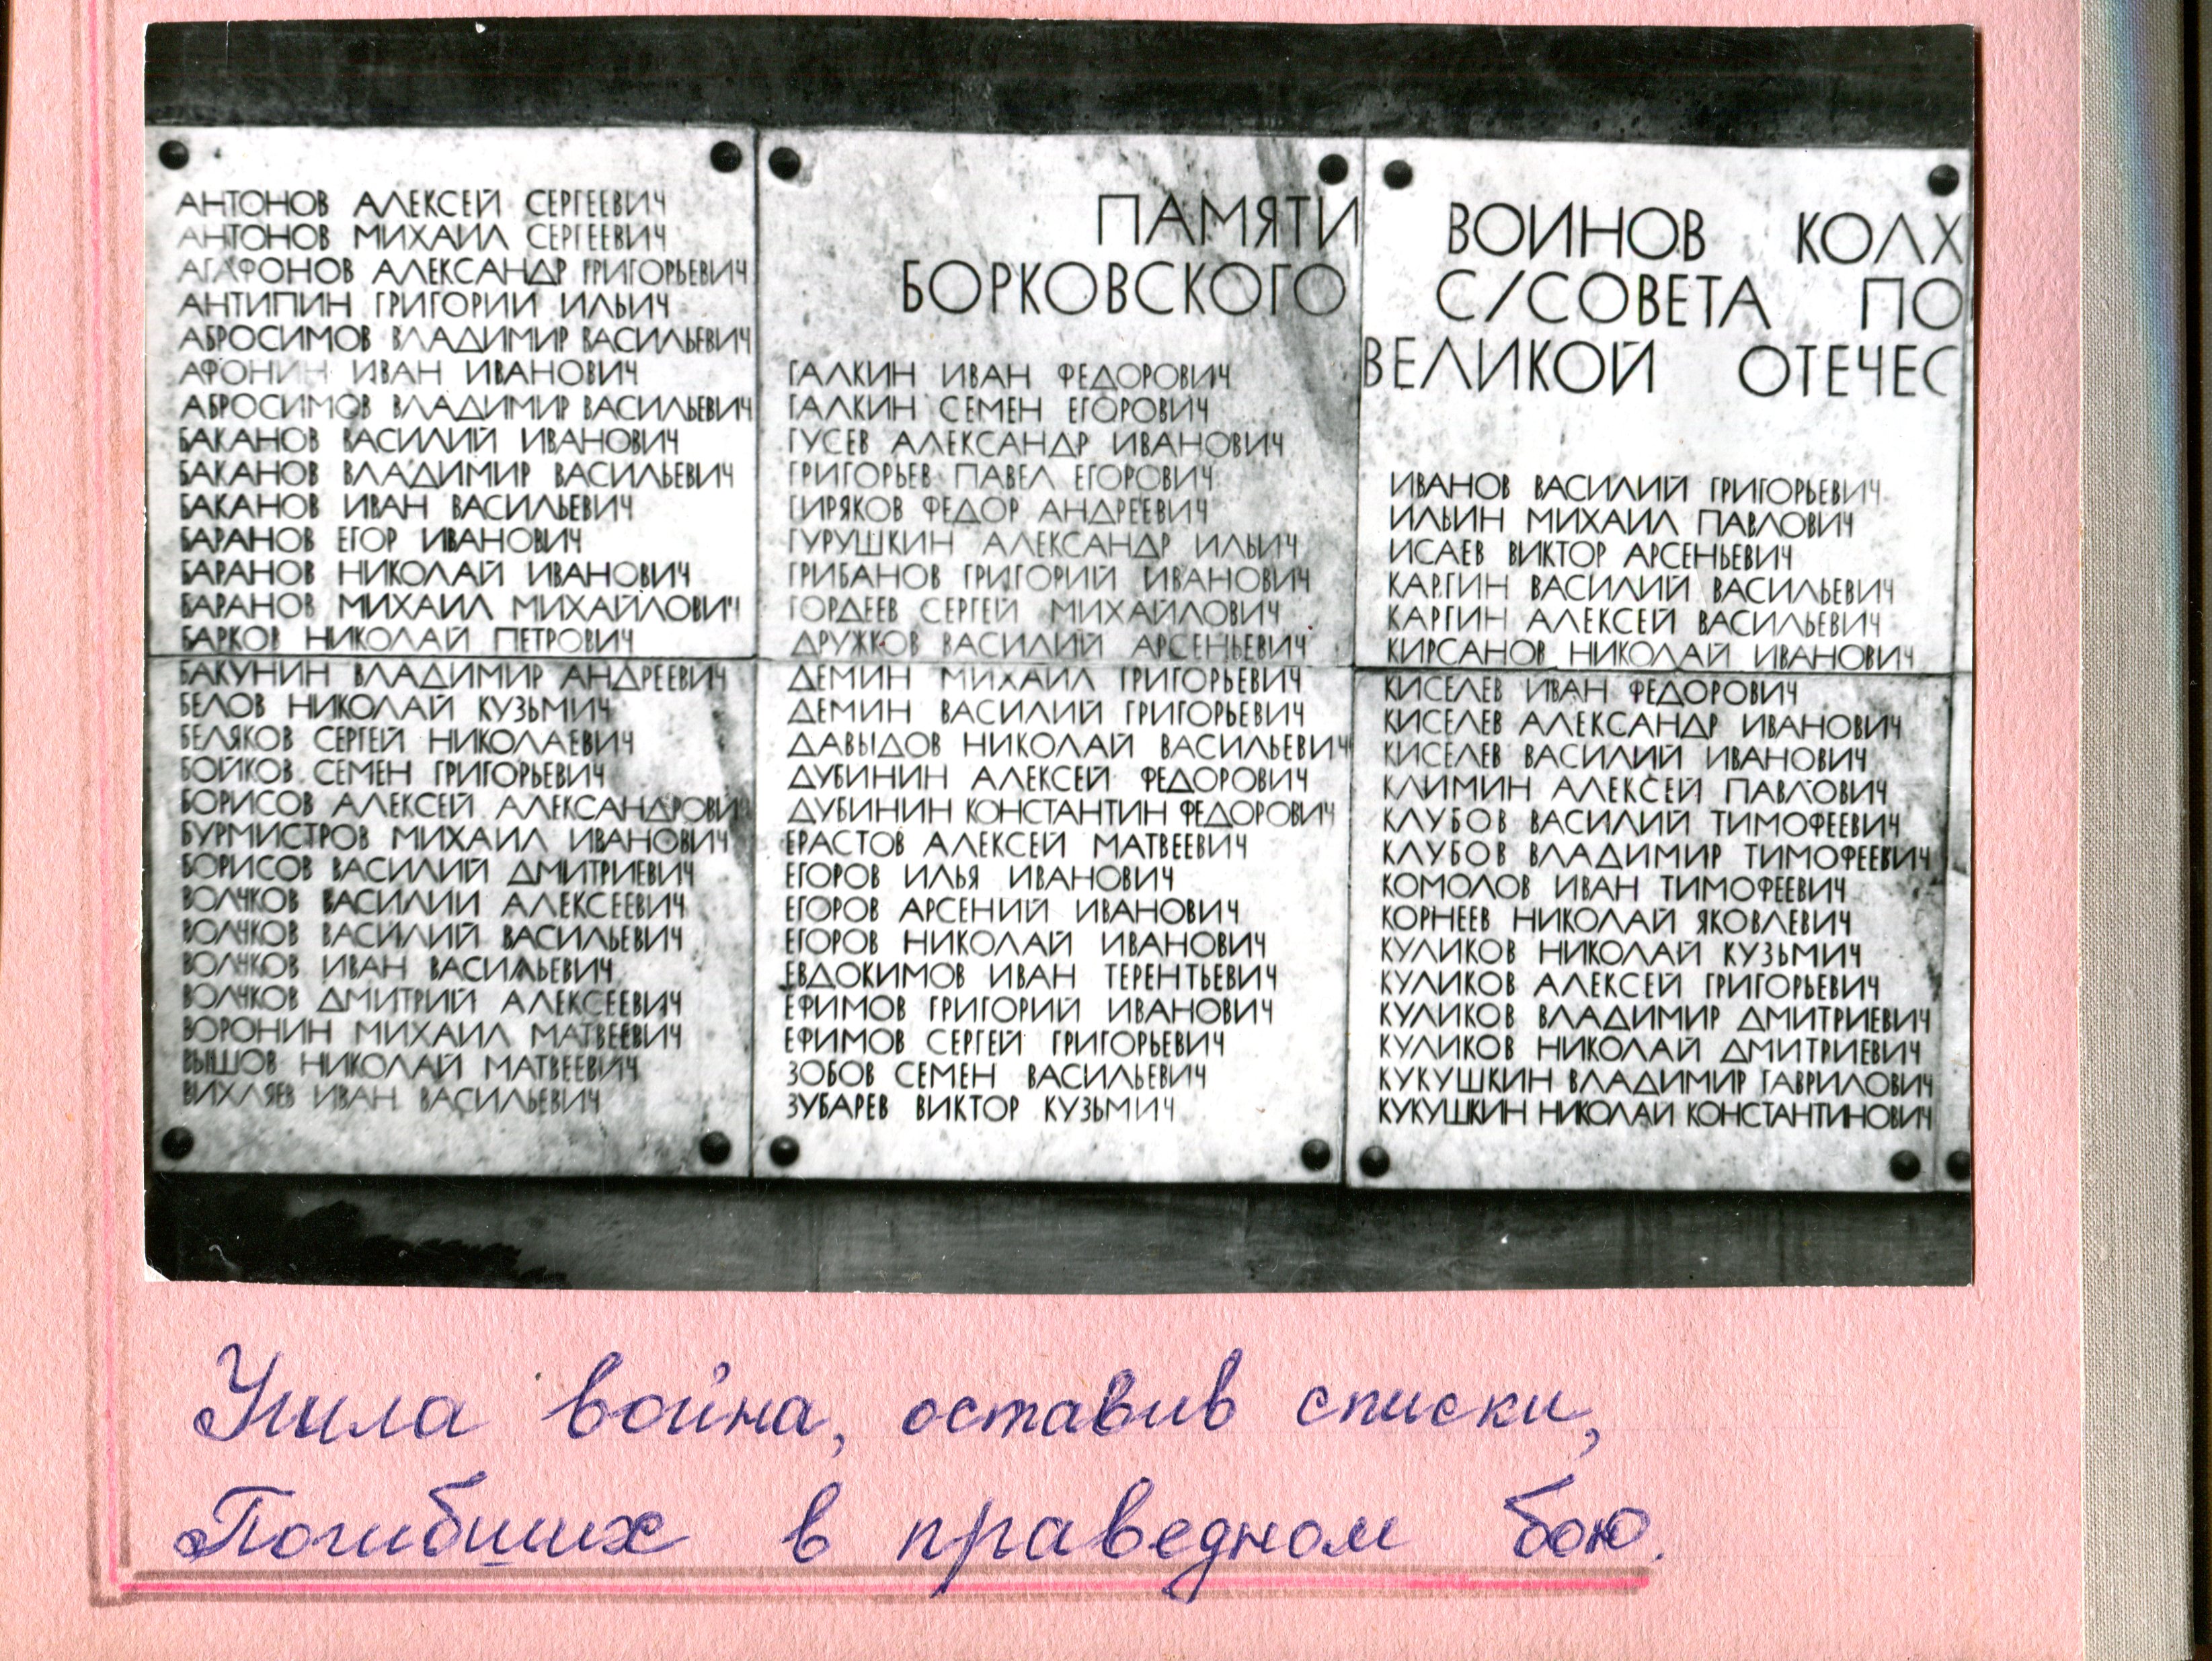 АНТОНОВ АЛЕКСЕЙ СЕРГЕЕВИЧ
АНТОНОВ МИХАИЛ СЕРГЕЕВИЧ
АГАФОНОВ АЛЕКСАНДР ГРИГОРЬЕВИЧ
АНТИПИН ГРИГОРИЙ ИЛЬИЧ
АБРОСИМОВ ВЛАДИМИР ВАСИЛЬЕВИЧ
АФОНИН ИВАН ИВАНОВИЧ
АБРОСИМОВ ВЛАДИМИР ВАСИЛЬЕВИЧ
БАКАНОВ ВАСИЛИЙ ИВАНОВИЧ
БАКАНОВ ВЛАДИМИР ВАСИЛЬЕВИЧ
БАКАНОВ ИВАН ВАСИЛЬЕВИЧ
БАРАНОВ ЕГОР ИВАНОВИЧ
БАРАНОВ НИКОЛАЙ ИВАНОВИЧ
БАРАНОВ МИХАИЛ МИХАЙЛОВИЧ
БАРКОВ НИКОЛАЙ ПЕТРОВИЧ
БАКУНИН ВЛАДИМИР АНДРЕЕВИЧ
БЕЛОВ НИКОЛАЙ КУЗЬМИЧ
БЕЛЯКОВ СЕРГЕЙ НИКОЛАЕВИЧ
БОЙКОВ СЕМЕН ГРИГОРЬЕВИЧ
БОРИСОВ АЛЕКСЕЙ АЛЕКСАНДРОВИЧ
БУРМИСТРОВ МИХАИЛ ИВАНОВИЧ
БОРИСОВ ВАСИЛИЙ ДМИТРИЕВИЧ
ВОЛЧКОВ ВАСИЛИЙ АЛЕКСЕЕВИЧ
ВОЛЧКОВ ВАСИЛИЙ ВАСИЛЬЕВИЧ
ВОЛЧКОВ ИВАН ВАСИЛЬЕВИЧ
ВОЛЧКОВ ДМИТРИЙ АЛЕКСЕЕВИЧ
ВОРОНИН МИХАИЛ МАТВЕЕВИЧ
ВЫШОВ НИКОЛАЙ МАТВЕЕВИЧ
ВИХЛЯЕВ ИВАН ВАСИЛЬЕВИЧ
ПАМЯТИ ВОИНОВ КОЛХ
БОРКОВСКОГО С/СОВЕТА ПО
ВЕЛИКОЙ ОТЕЧЕС
ГАЛКИН ИВАН ФЕДОРОВИЧ
ГАЛКИН СЕМЕН ЕГОРОВИЧ
ГУСЕВ АЛЕКСАНДР ИВАНОВИЧ
ГРИГОРЬЕВ ПАВЕЛ ЕГОРОВИЧ
ГИРЯКОВ ФЕДОР АНДРЕЕВИЧ
ГУРУШКИН АЛЕКСАНДР ИЛЬИЧ
ГРИБАНОВ ГРИГОРИЙ ИВАНОВИЧ
ГОРДЕЕВ СЕРГЕЙ МИХАЙЛОВИЧ
ДРУЖКОВ ВАСИЛИЙ АРСЕНЬЕВИЧ
ДЕМИН МИХАИЛ ГРИГОРЬЕВИЧ
ДЕМИН ВАСИЛИЙ ГРИГОРЬЕВИЧ
ДАВЫДОВ НИКОЛАЙ ВАСИЛЬЕВИЧ
ДУБИНИН АЛЕКСЕЙ ФЕДОРОВИЧ
ДУБИНИН КОНСТАНТИН ФЕДОРОВИЧ
ЕРАСТОВ АЛЕКСЕЙ МАТВЕЕВИЧ
ЕГОРОВ ИЛЬЯ ИВАНОВИЧ
ЕГОРОВ АРСЕНИЙ ИВАНОВИЧ
ЕГОРОВ НИКОЛАЙ ИВАНОВИЧ
ЕВДОКИМОВ ИВАН ТЕРЕНТЬЕВИЧ
ЕФИМОВ ГРИГОРИЙ ИВАНОВИЧ
ЕФИМОВ СЕРГЕЙ ГРИГОРЬЕВИЧ
ЗОБОВ СЕМЕН ВАСИЛЬЕВИЧ
ЗУБАРЕВ ВИКТОР КУЗЬМИЧ
ИВАНОВ ВАСИЛИЙ ГРИГОРЬЕВИЧ
ИЛЬИН МИХАИЛ ПАВЛОВИЧ
ИСАЕВ ВИКТОР АРСЕНЬЕВИЧ
КАРГИН ВАСИЛИЙ ВАСИЛЬЕВИЧ
КАРГИН АЛЕКСЕЙ ВАСИЛЬЕВИЧ
КИРСАНОВ НИКОЛАЙ ИВАНОВИЧ
КИСЕЛЕВ ИВАН ФЕДОРОВИЧ
КИСЕЛЕВ АЛЕКСАНДР ИВАНОВИЧ
КИСЕЛЕВ ВАСИЛИЙ ИВАНОВИЧ
КЛИМИН АЛЕКСЕЙ ПАВЛОВИЧ
КЛУБОВ ВАСИЛИЙ ТИМОФЕЕВИЧ
КЛУБОВ ВЛАДИМИР ТИМОФЕЕВИЧ
КОМОЛОВ ИВАН ТИМОФЕЕВИЧ
КОРНЕЕВ НИКОЛАЙ ЯКОВЛЕВИЧ
КУЛИКОВ НИКОЛАЙ КУЗЬМИЧ
КУЛИКОВ АЛЕКСЕЙ ГРИГОРЬЕВИЧ
КУЛИКОВ ВЛАДИМИР ДМИТРИЕВИЧ
КУЛИКОВ НИКОЛАЙ ДМИТРИЕВИЧ
КУКУШКИН ВЛАДИМИР ГАВРИЛОВИЧ
КУКУШКИН НИКОЛАЙ КОНСТАНТИНОВИЧ
Ушла война, оставив списки,
Погибших в праведном бою.